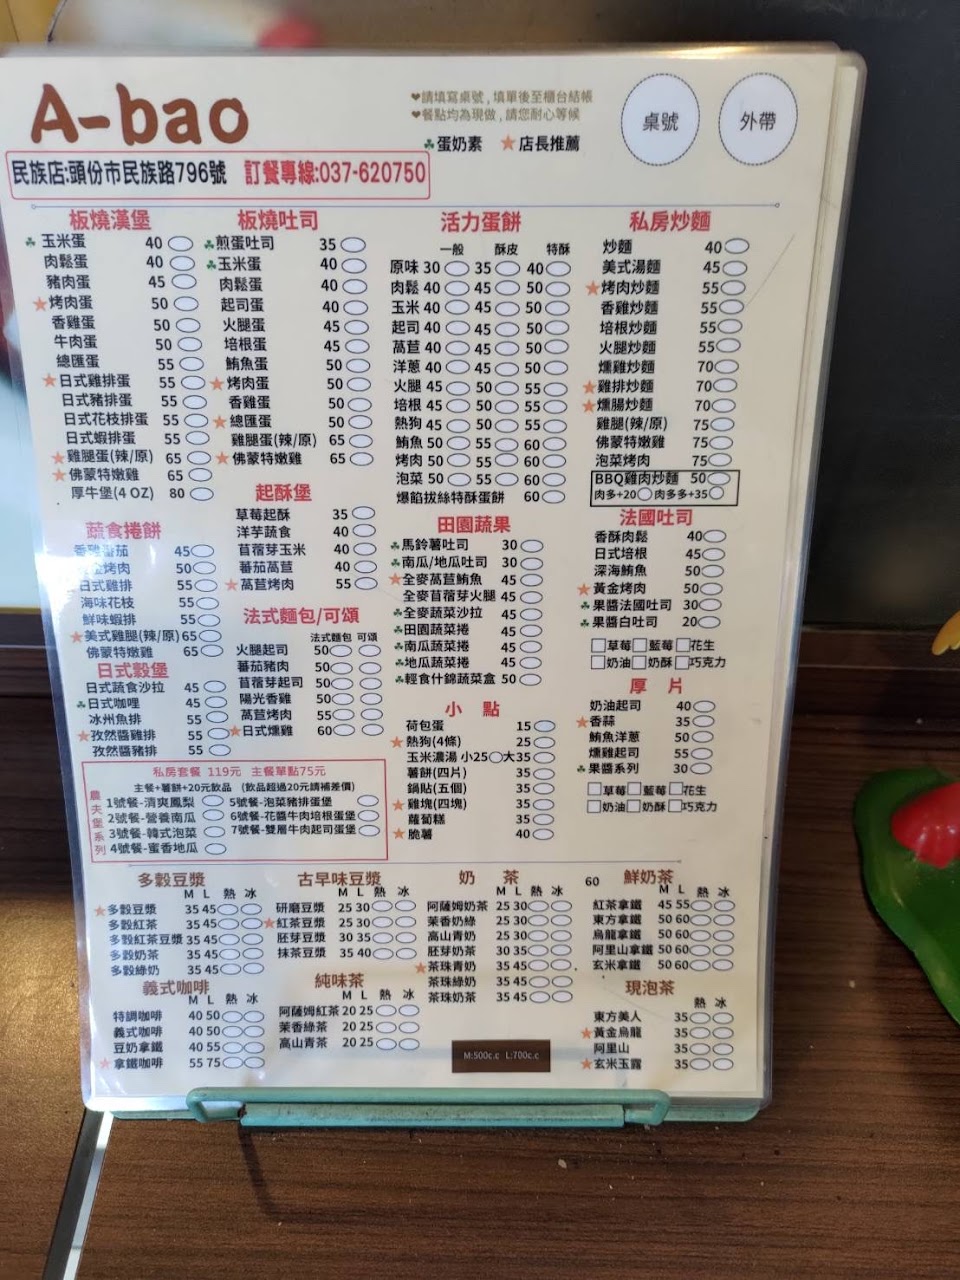 A-bao
❤請填寫桌號,填單後至櫃台結帳
❤餐點均為現做,請您耐心等候
♣蛋奶素 ★店長推薦
桌號
外帶
民族店:頭份市民族路796號 訂餐專線:037-620750
板燒漢堡
♣玉米蛋 40
肉鬆蛋 40
豬肉蛋 45
★烤肉蛋 50
香雞蛋 50
牛肉蛋 50
總匯蛋 55
★日式雞排蛋 55
日式豬排蛋 55
日式花枝排蛋 55
日式蝦排蛋 55
★雞腿蛋(辣/原) 65
★佛蒙特嫩雞 65
厚牛堡(4 OZ) 80
蔬食捲餅
番茄 45
烤肉 50
日式雞排 55
海味花枝 55
鮮味蝦排 55
★美式雞腿(辣/原) 65
佛蒙特嫩雞 65
日式穀堡
日式蔬食沙拉 45
♣日式咖哩 45
冰州魚排 55
★孜然醬雞排 55
孜然醬豬排 55
板燒吐司
♣煎蛋吐司 35
♣玉米蛋 40
肉鬆蛋 40
起司蛋 40
火腿蛋 45
培根蛋 45
鮪魚蛋 50
★烤肉蛋 50
香雞蛋 50
★總匯蛋 50
雞腿蛋(辣/原) 65
★佛蒙特嫩雞 65
起酥堡
草莓起酥 35
洋芋蔬食 40
苜蓿芽玉米 40
蕃茄萵苣 40
★萵苣烤肉 55
法式麵包/可頌
法式麵包 可頌
火腿起司 50
蕃茄豬肉 50
苜蓿芽起司 50
陽光香雞 50
萵苣烤肉 55
★日式燻雞 60
活力蛋餅
一般 酥皮 特酥
原味 30 35 40
肉鬆 40 45 50
玉米 40 45 50
起司 40 45 50
萵苣 40 45 50
洋蔥 40 45 50
火腿 45 50 55
培根 45 50 55
熱狗 45 50 55
鮪魚 50 55 60
烤肉 50 55 60
泡菜 50 55 60
爆餡拔絲特酥蛋餅 60
田園蔬果
♣馬鈴薯吐司 30
♣南瓜/地瓜吐司 30
★全麥萵苣鮪魚 45
全麥苜蓿芽火腿 45
♣全麥蔬菜沙拉 45
♣田園蔬菜捲 45
♣南瓜蔬菜捲 45
♣地瓜蔬菜捲 45
♣輕食什錦蔬菜盒 50
小 點
荷包蛋 15
★熱狗(4條) 25
玉米濃湯 小25 大35
薯餅(四片) 35
鍋貼(五個) 35
★雞塊(四塊) 35
蘿蔔糕 35
★脆薯 40
私房炒麵
炒麵 40
美式湯麵 45
★烤肉炒麵 55
香雞炒麵 55
培根炒麵 55
火腿炒麵 55
燻雞炒麵 70
★雞排炒麵 70
★燻腸炒麵 70
雞腿(辣/原) 75
佛蒙特嫩雞 75
泡菜烤肉 75
BBQ雞肉炒麵 50
肉多+20 肉多多+35
法國吐司
香酥肉鬆 40
日式培根 45
深海鮪魚 50
★黃金烤肉 50
♣果醬法國吐司 30
♣果醬白吐司 20
草莓 藍莓 花生
奶油 奶酥 巧克力
厚 片
奶油起司 40
★香蒜 35
鮪魚洋蔥 50
燻雞起司 55
♣果醬系列 30
草莓 藍莓 花生
奶油 奶酥 巧克力
私房套餐 119元 主餐單點75元
主餐+薯餅+20元飲品 (飲品超過20元請補差價)
農夫堡系列
1號餐-清爽鳳梨 5號餐-泡菜豬排蛋堡
2號餐-營養南瓜 6號餐-花醬牛肉培根蛋堡
3號餐-韓式泡菜 7號餐-雙層牛肉起司蛋堡
4號餐-蜜香地瓜
多穀豆漿
M L 熱 冰
★多穀豆漿 35 45
多穀紅茶 35 45
多穀紅茶豆漿 35 45
多穀奶茶 35 45
多穀綠奶 35 45
義式咖啡
M L 熱 冰
特調咖啡 40 50
義式咖啡 40 50
豆奶拿鐵 40 55
★拿鐵咖啡 55 75
古早味豆漿
M L 熱 冰
研磨豆漿 25 30
★紅茶豆漿 25 30
胚芽豆漿 30 35
抹茶豆漿 35 40
純味茶
M L 熱 冰
阿薩姆紅茶 20 25
茉香綠茶 20 25
高山青茶 20 25
奶 茶
M L 熱 冰
阿薩姆奶茶 25 30
茉香奶綠 25 30
高山青奶 25 30
胚芽奶茶 30 35
★茶珠青奶 35 45
茶珠綠奶 35 45
茶珠奶茶 35 45
M:500c.c L:700c.c
60 鮮奶茶
M L 熱 冰
紅茶拿鐵 45 55
東方拿鐵 50 60
烏龍拿鐵 50 60
阿里山拿鐵 50 60
玄米拿鐵 50 60
現泡茶
熱 冰
東方美人 35
★黃金烏龍 35
阿里山 35
★玄米玉露 35